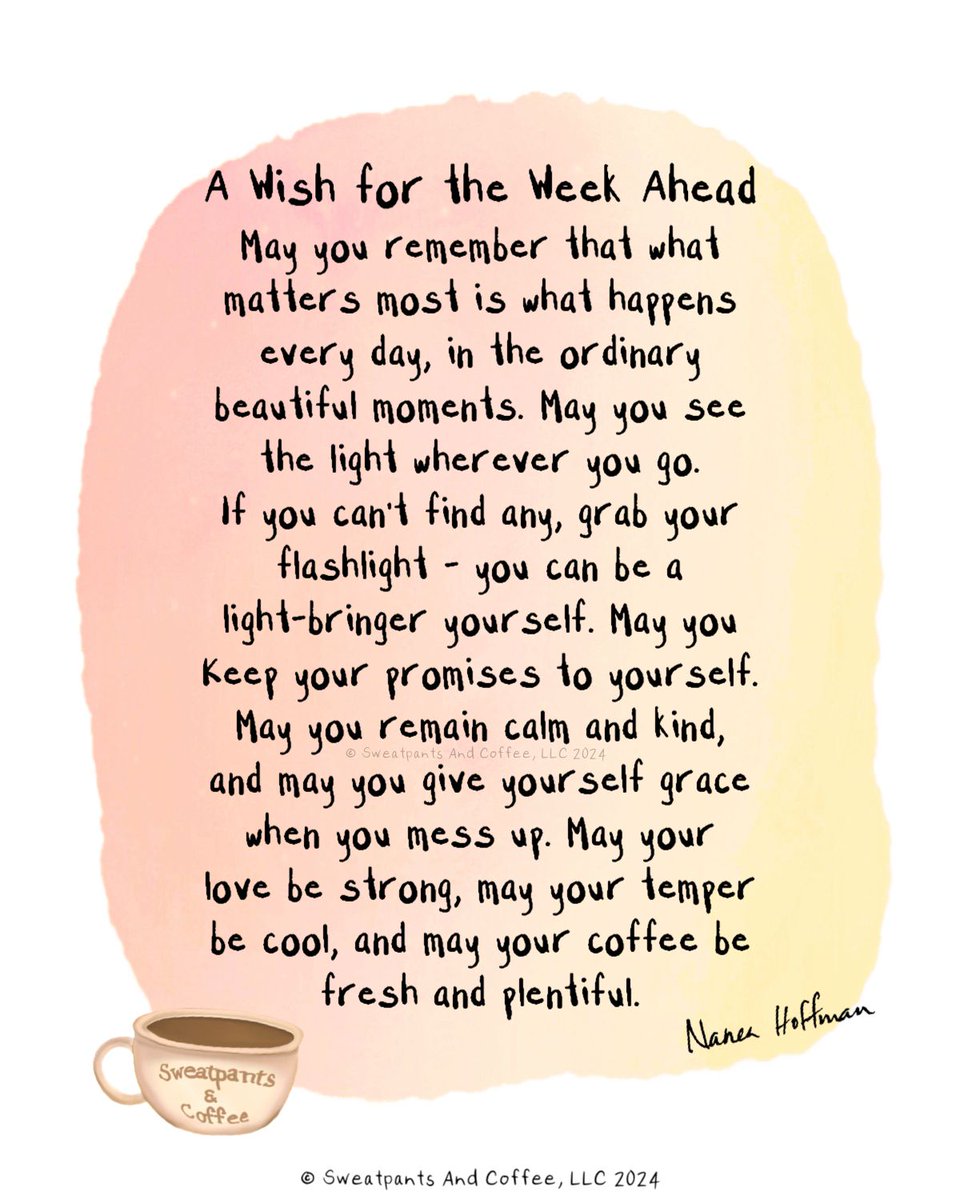 A Wish for the Week Ahead
May you remember that what
matters most is what happens
every day, in the ordinary
beautiful moments. May you see
the light wherever you go.
If you can't find any, grab your
flashlight - you can be a
light-bringer yourself. May you
keep your promises to yourself.
May you remain calm and kind,
© Sweatpants And Coffee, LLC 2024
and may you give yourself grace
when you mess up. May your
love be strong, may your temper
be cool, and may your coffee be
fresh and plentiful.
Nanea Hoffman
Sweatpants
&
Coffee
© Sweatpants And Coffee, LLC 2024